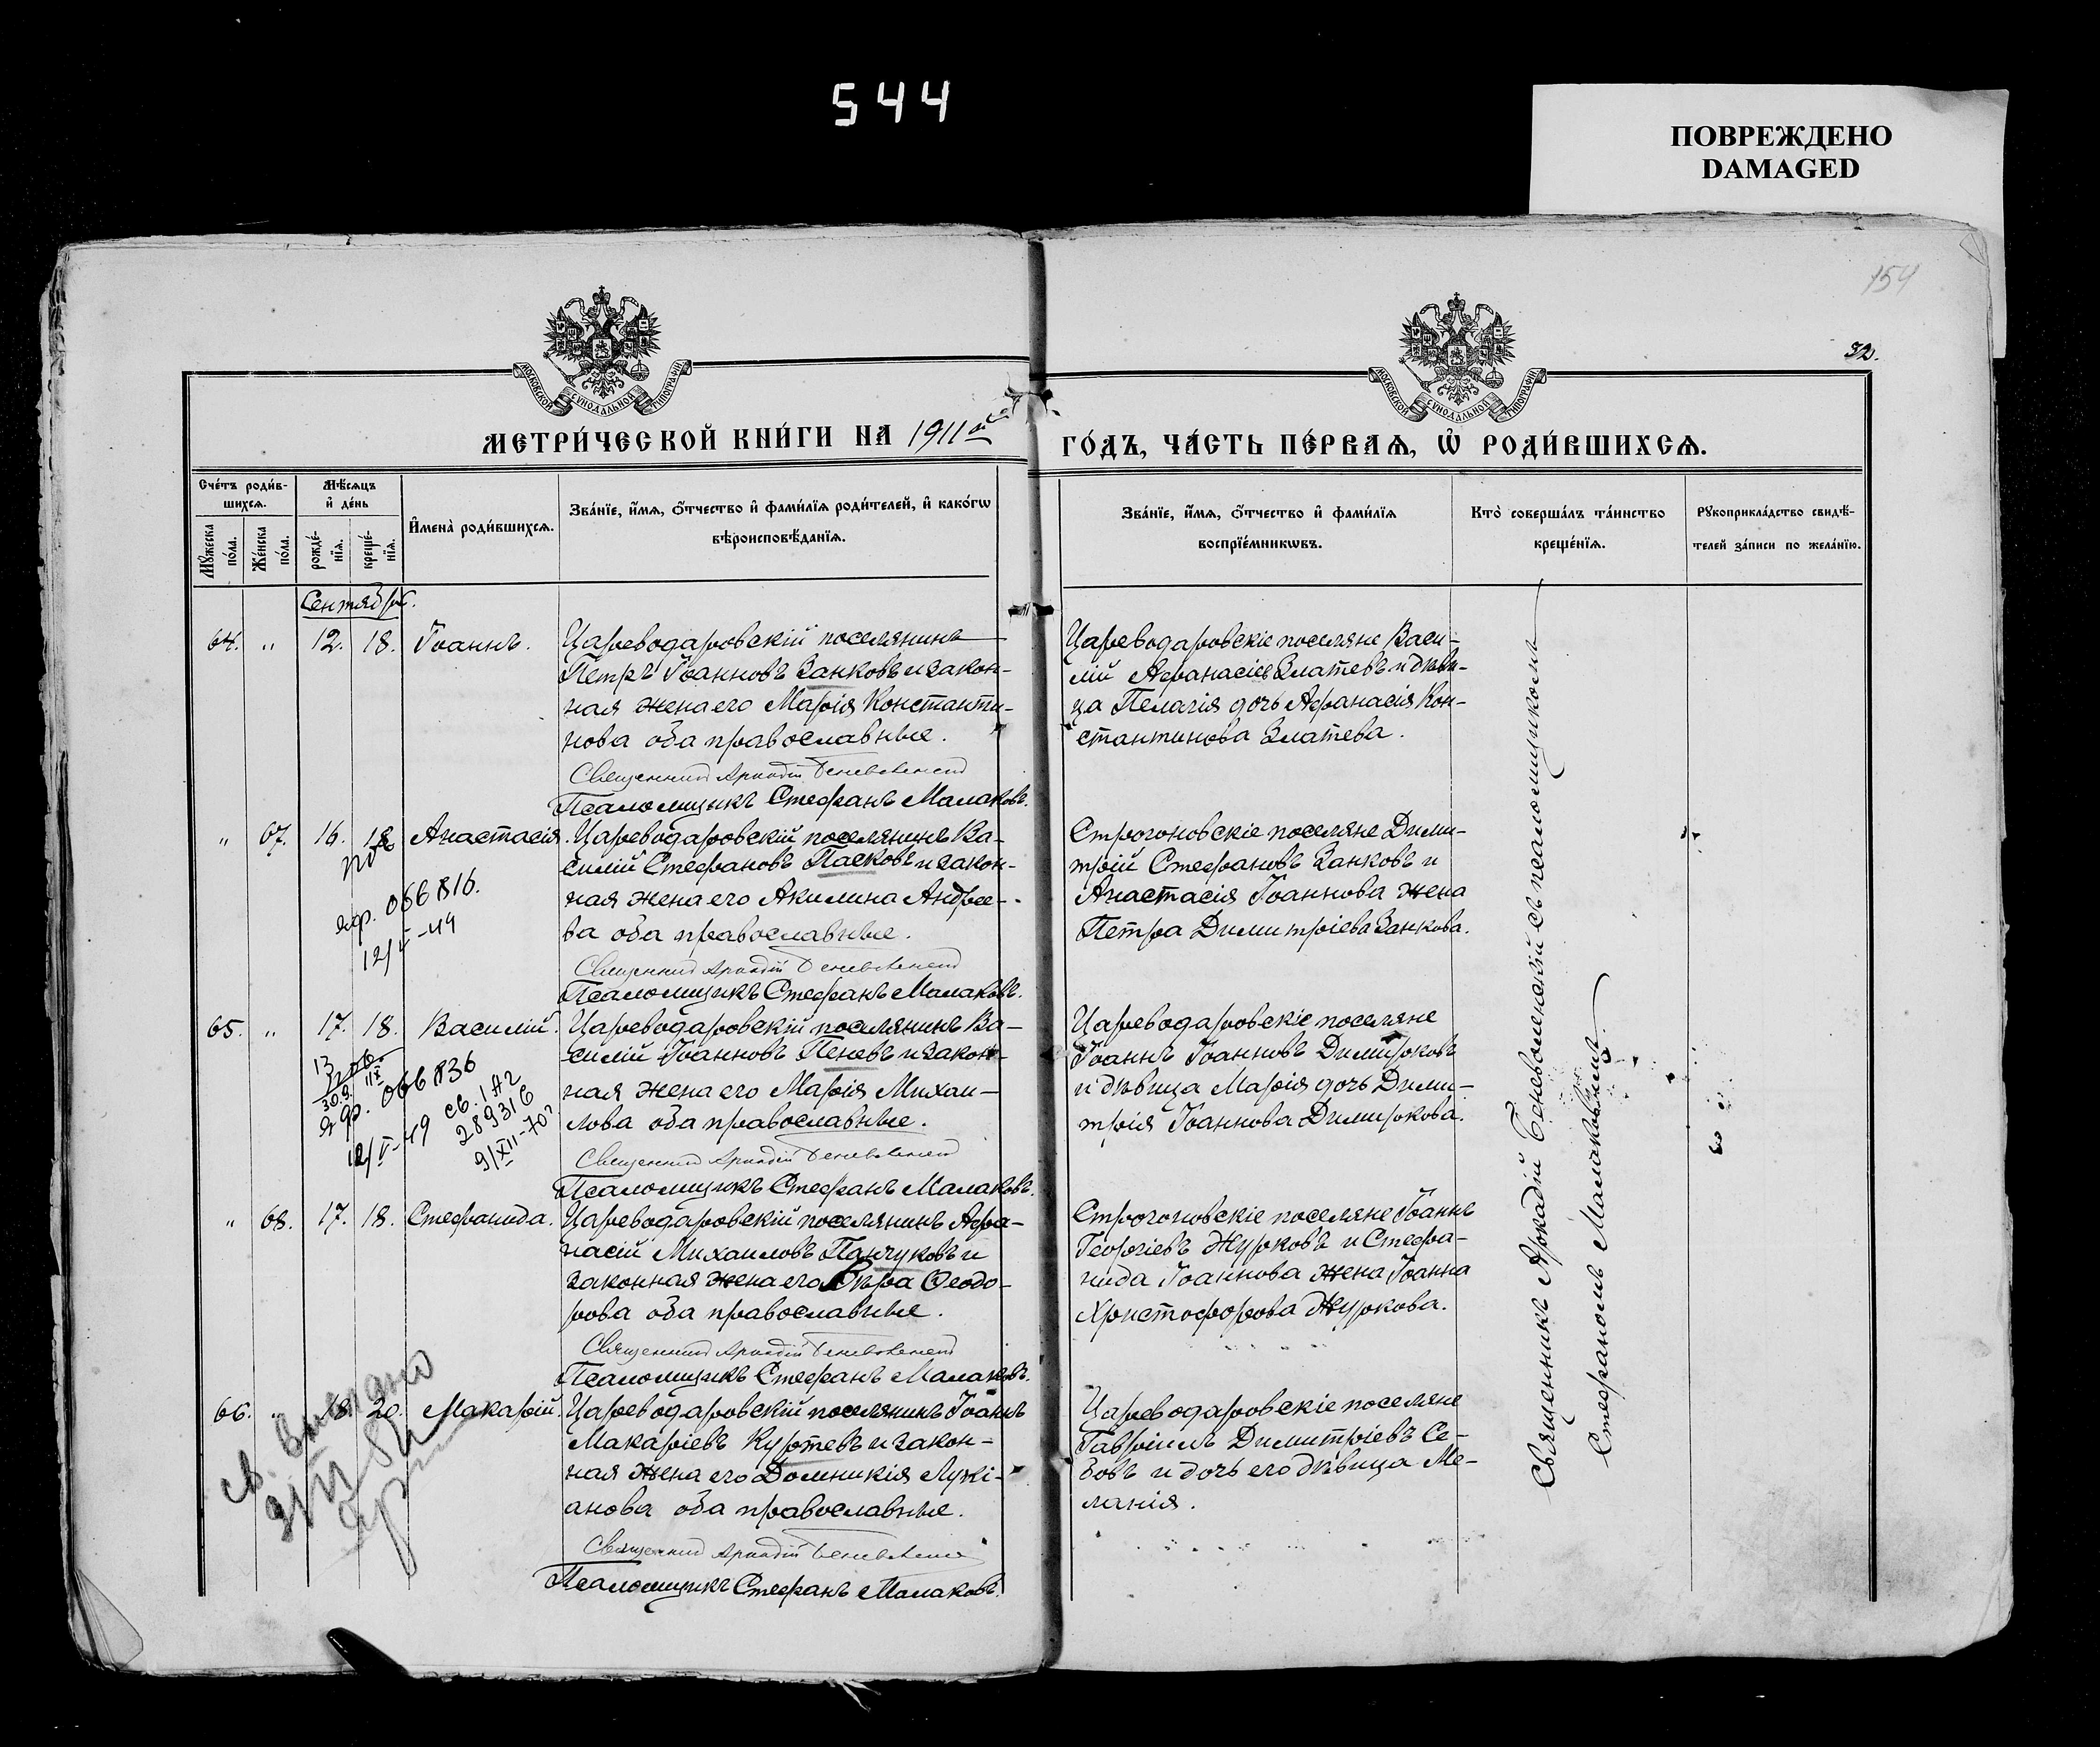 544
ПОВРЕЖДЕНО
DAMAGED
154
32.
МОСКОВСКОЙ СѴНОДАЛЬНОЙ ТИПОГРАФИИ
МОСКОВСКОЙ СѴНОДАЛЬНОЙ ТИПОГРАФИИ
МЕТРИ́ЧЕСКОЙ КНИ́ГИ НА 1911й
ГО́ДЪ, ЧА́СТЬ ПЕ́РВАѦ, Ѡ҆ РОДИ́ВШИХСѦ.
Сче́тъ роди́в-
шихсѧ.
Мꙋ́жеска
по́ла.
Же́нска
по́ла.
Мѣ́сѧцъ
и҆ де́нь
рожде́-
нїѧ.
креще́-
нїѧ.
И҆мена̀ роди́вшихсѧ.
Зва́нїе, и҆́мѧ, ѻ҆́тчество и҆ фами́лїѧ роди́телей, и҆ како́гѡ
вѣроисповѣ́данїѧ.
Зва́нїе, и҆́мѧ, ѻ҆́тчество и҆ фами́лїѧ
воспрїе́мникѡвъ.
Кто̀ соверша́лъ та́инство
креще́нїѧ.
Рꙋкоприкла́дство свидѣ́-
телей за́писи по жела́нїю.
Сентябрь.
64. " 12. 18. Іоаннъ.
Цареводаровскій поселянинъ
Петръ Іоанновъ Занковъ и закон-
ная жена его Марія Константи-
нова оба православные.
Священникъ Аркадій Беневоленскій
Псаломщикъ Стефанъ Малаковъ.
Цареводаровскіе поселяне Васи-
лій Афанасіевъ Златевъ и дѣви-
ца Пелагія дочь Афанасія Кон-
стантинова Златева.
" 67. 16. 18. Анастасія.
Цареводаровскій поселянинъ Ва-
силій Стефановъ Пасковъ и закон-
ная жена его Акилина Андрее-
ва оба православные.
Священникъ Аркадій Беневоленскій
Псаломщикъ Стефанъ Малаковъ.
Строгоновскіе поселяне Дими-
трій Стефановъ Занковъ и
Анастасія Іоаннова жена
Петра Димитріева Занкова.
066816.
12/V-49
65. " 17. 18. Василій.
Цареводаровскій поселянинъ Ва-
силій Іоанновъ Пеневъ и закон-
ная жена его Марія Михаи-
лова оба православные.
Священникъ Аркадій Беневоленскій
Псаломщикъ Стефанъ Малаковъ.
Цареводаровскіе поселяне
Іоаннъ Іоанновъ Димирковъ
и дѣвица Марія дочь Дими-
трія Іоаннова Димиркова.
066836
12/V-49
св. 1 АЯ
289316
9/XII-70
" 68. 17. 18. Стефанида.
Цареводаровскій поселянинъ Афа-
насій Михаиловъ Панчуковъ и
законная жена его Вѣра Ѳеодо-
рова оба православные.
Священникъ Аркадій Беневоленскій
Псаломщикъ Стефанъ Малаковъ.
Строгоновскіе поселяне Іоаннъ
Георгіевъ Журковъ и Стефа-
нида Іоаннова жена Іоанна
Христофорова Журкова.
66. " 18. 20. Макарій.
Цареводаровскій поселянинъ Іоаннъ
Макаріевъ Куртевъ и закон-
ная жена его Домникія Лукі-
анова оба православные.
Священникъ Аркадій Беневоленскій
Псаломщикъ Стефанъ Малаковъ.
Цареводаровскіе поселяне
Гавріилъ Димитріевъ Се-
бовъ и дочь его дѣвица Ме-
ланія.
Священникъ Аркадій Беневоленскій съ псаломщикомъ
Стефаномъ Малаковымъ.